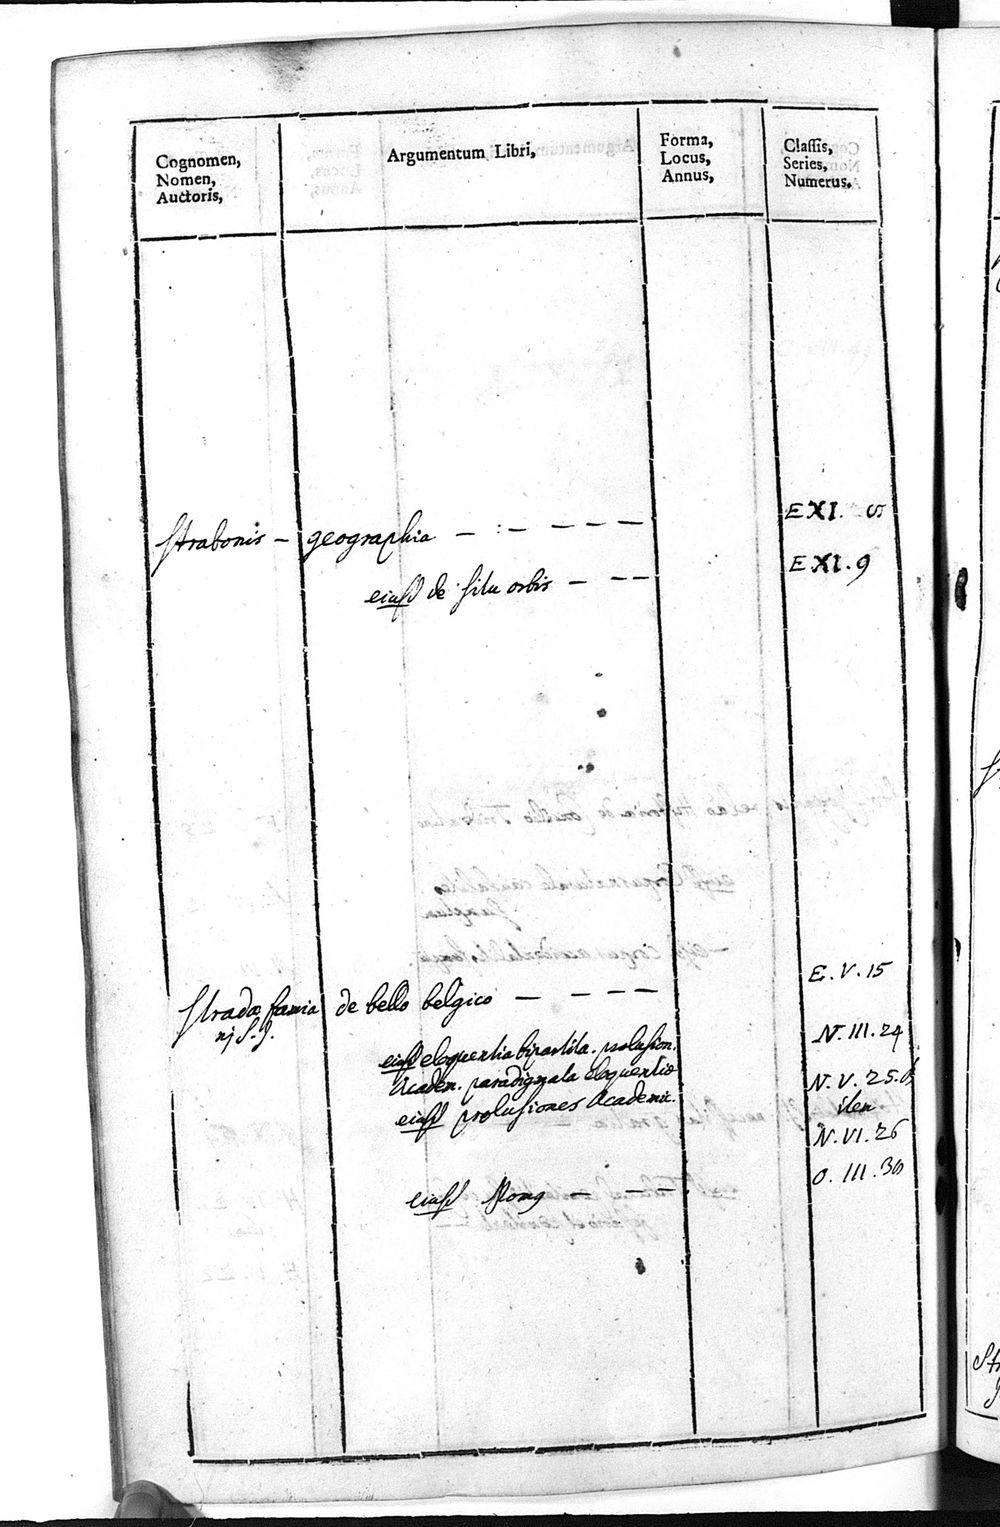 Cognomen,
Nomen,
Auctoris,
Argumentum Libri,
Forma,
Locus,
Annus,
Classis,
Series,
Numerus.
Strabonis - geographia - - - - - E XI.
eiusd de situ orbis - - - E XI. 9
Stradæ famia de bello belgico - - - - E. V. 15
nj S. J.
eiusd eloquentia bipartita. prolusion. N. III. 24
Academ. paradigmata eloquentiæ
N. V. 25.
eiusd prolusiones Academic. item
N. VI. 26
eiusd - - - O. III.